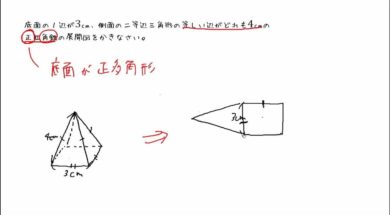 底面の1辺が3cm、側面の二等辺三角形の等しい辺がどれも4cmの
正四角錐の展開図をかきなさい。
底面が正多角形
4cm
3cm
3cm